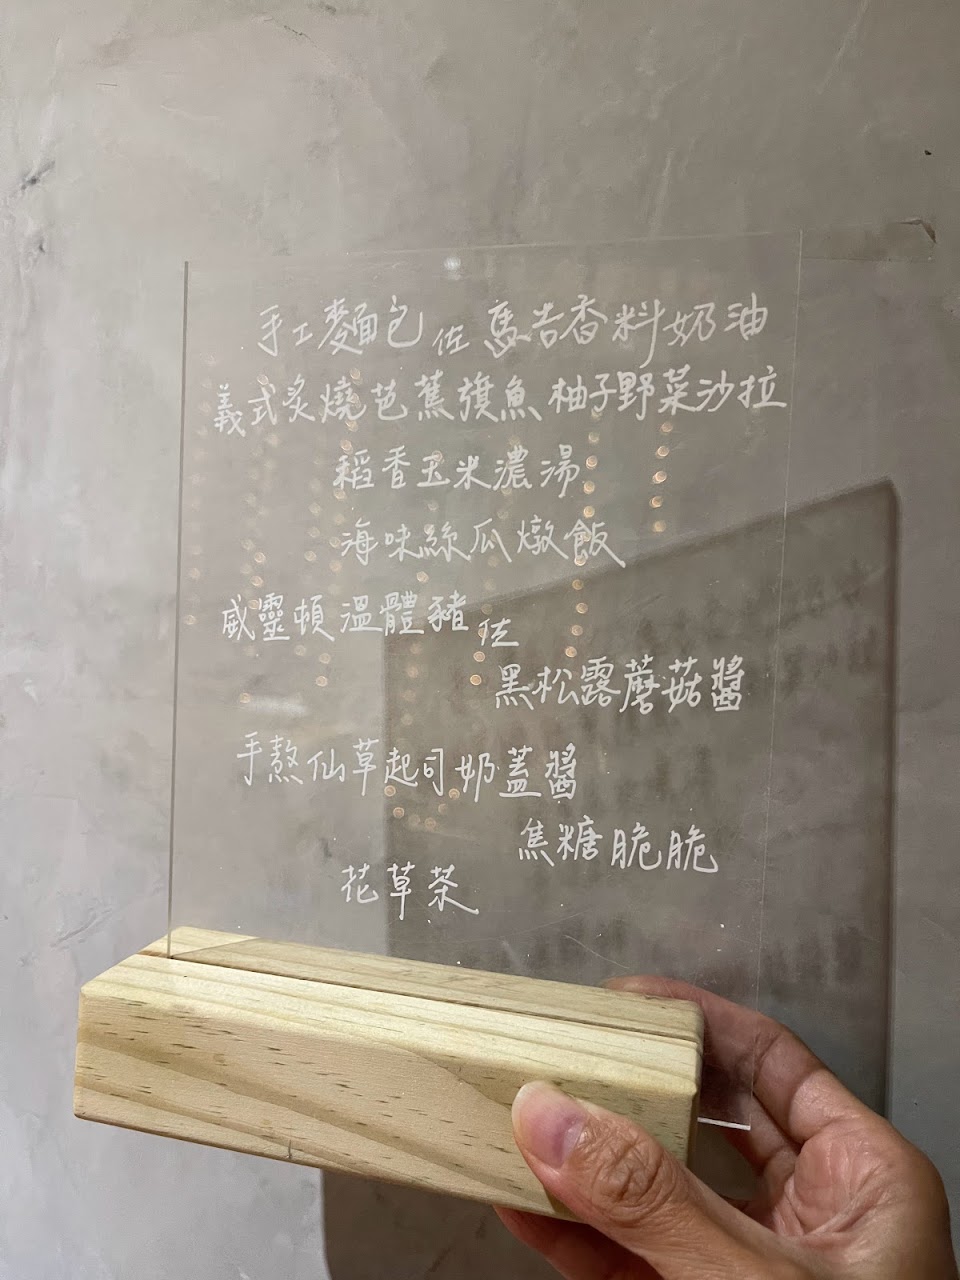 手工麵包佐馬告香料奶油
義式炙燒芭蕉旗魚柚子野菜沙拉
稻香玉米濃湯
海味絲瓜燉飯
威靈頓溫體豬佐
黑松露蘑菇醬
手熬仙草起司奶蓋醬
焦糖脆脆
花草茶